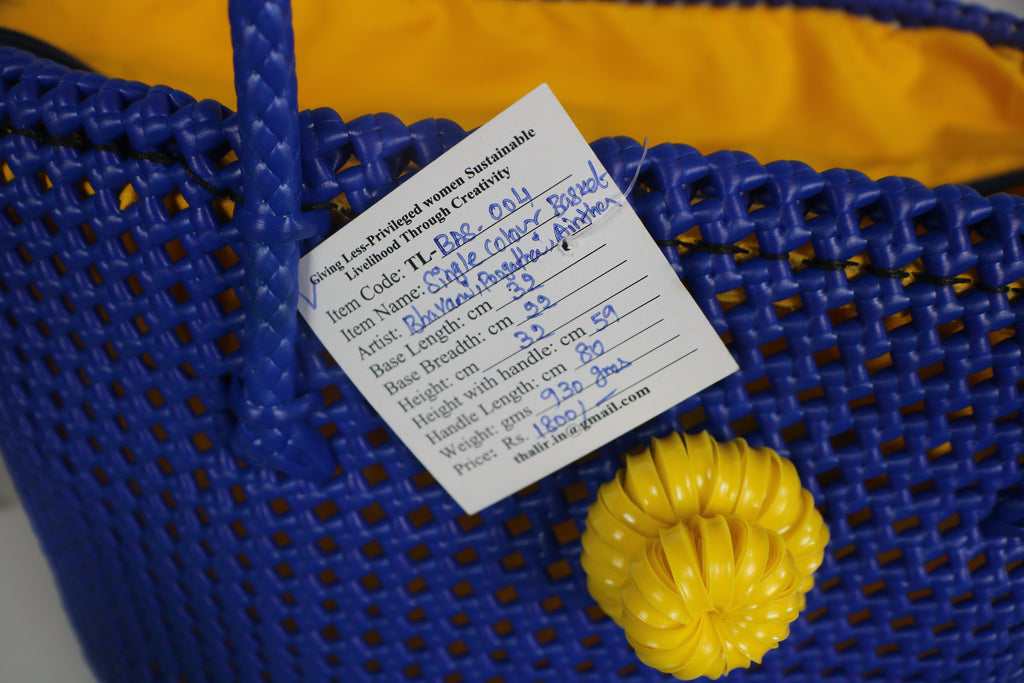 Giving Less-Privileged women Sustainable
Livelihood Through Creativity
Item Code: TL-BAS-004
Item Name: Single colour Basket
Artist: Bhavani,
Base Length: cm 32
Base Breadth: cm 22
Height: cm 32
Height with handle: cm 59
Handle Length: cm 80
Weight: gms 930 gms
Price: Rs. 1800/-
thalir.in@gmail.com